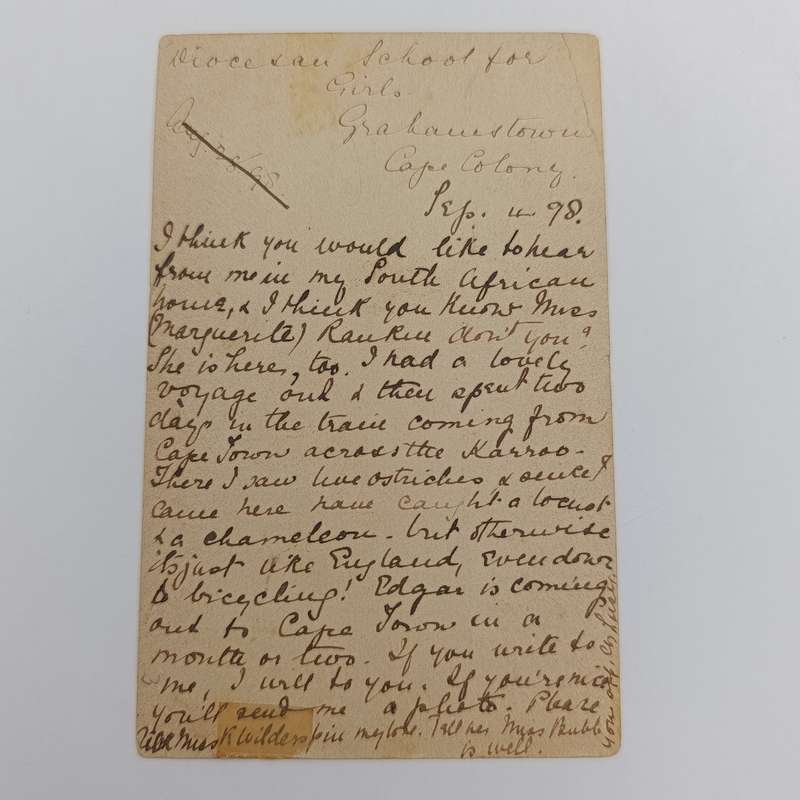 Diocesan School for
Girls.
Grahamstown
Cape Colony.
Aug. 28/98.
Sep. 4 98.
I think you would like to hear
from me in my South African
home, & I think you know Miss
(Marguerite) Rankin don't you?
She is here, too. I had a lovely
voyage out & then spent two
days in the train coming from
Cape Town across the Karroo.
There I saw live ostriches & since I
came here have caught a locust
& a chameleon - but otherwise
it's just like England, even down
to bicycling! Edgar is coming
out to Cape Town in a
month or two. If you write to
me, I will to you. If you're nice
you'll send me a photo. Please
Miss K Wilders in my love. Tell her Miss Bubb
is well.
your